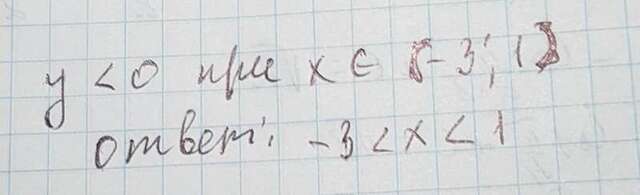 y < 0 при x ∈ (-3; 1)
ответ: -3 < x < 1